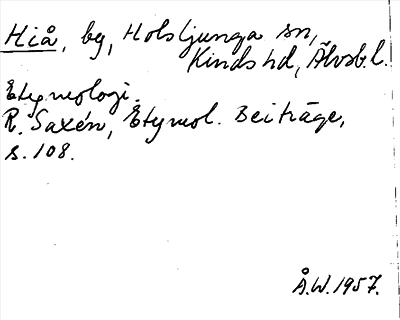 Hiå, by, Holsljunga sn,
Kinds hd, Älvsb.l.
Etymologi.
R. Saxén, Etymol. Beiträge,
s. 108.
Å.W. 1957.